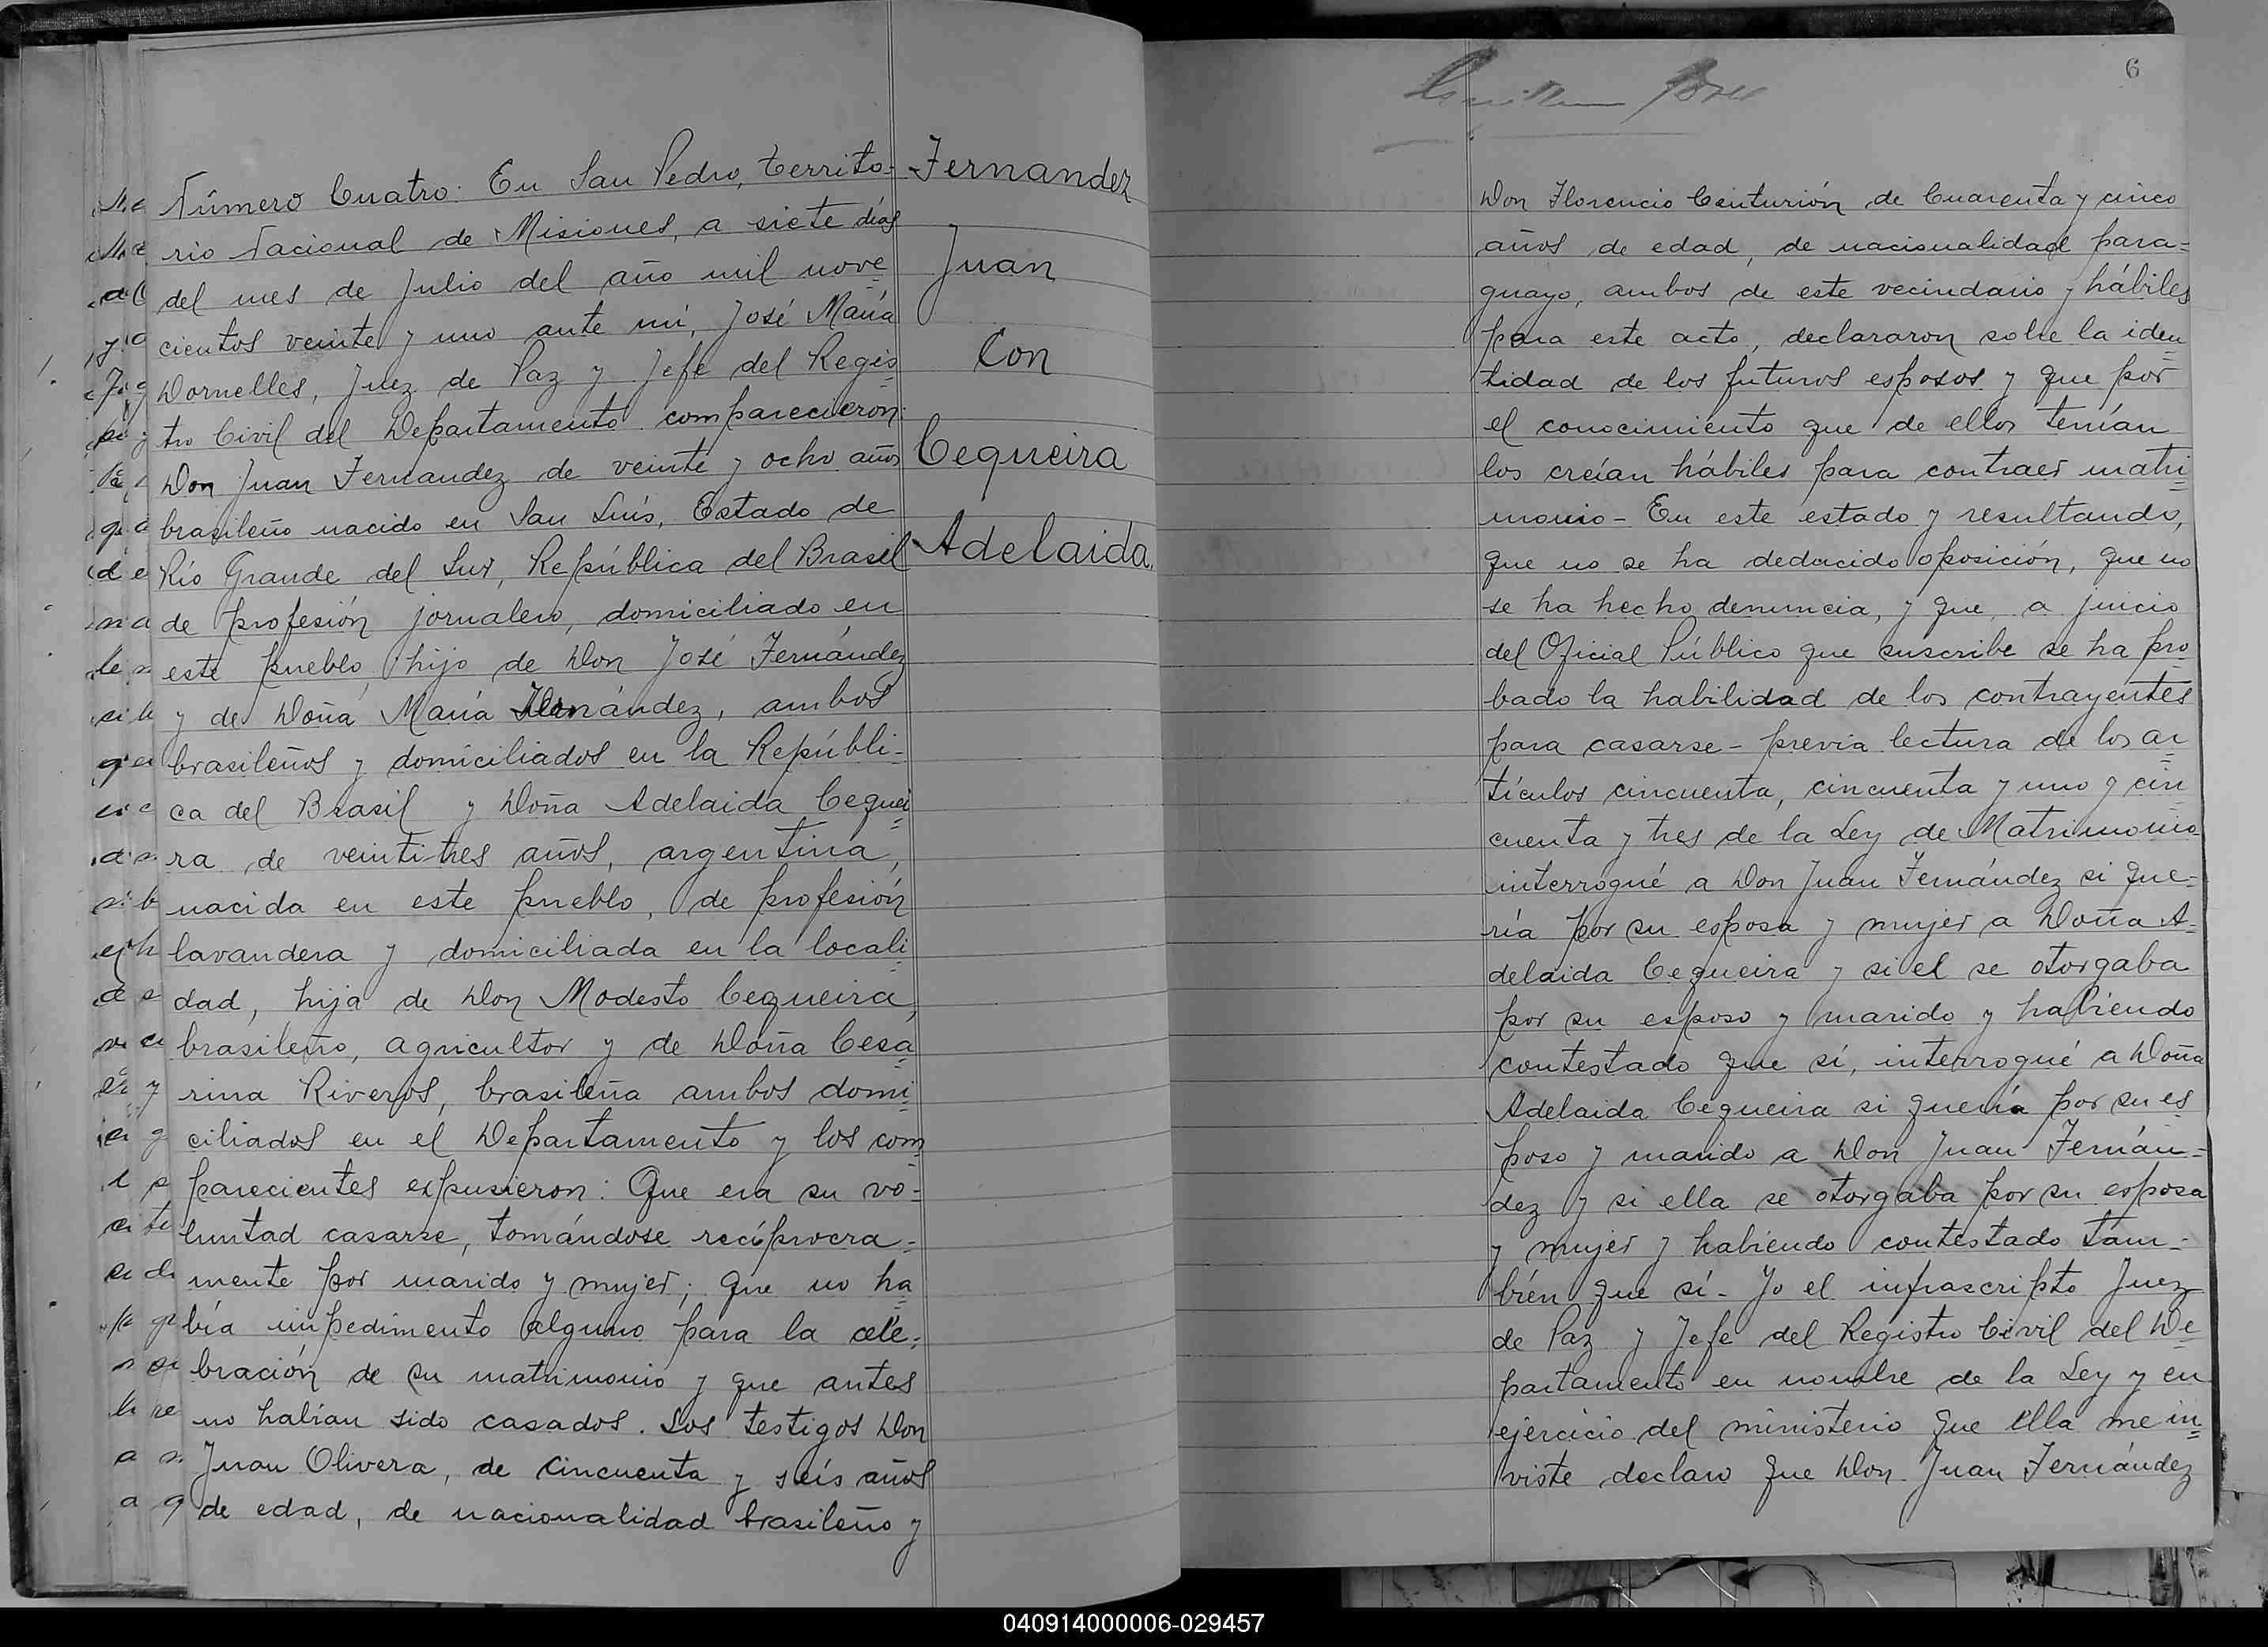 Número Cuatro: En San Pedro, territo-
rio Nacional de Misiones, a siete días
del mes de Julio del año mil nove
cientos veinte y uno ante mí, José María
Dornelles, Juez de Paz y Jefe del Regis
tro Civil del Departamento comparecieron:
Don Juan Fernandez de veinte y ocho años
brasileño nacido en San Luis, Estado de
Río Grande del Sur, República del Brasil
de profesión jornalero, domiciliado en
este pueblo, hijo de Don José Fernández
y de Doña María Fernández, ambos
brasileños y domiciliados en la Repúbli-
ca del Brasil y Doña Adelaida Cequei
ra de veintitres años, argentina,
nacida en este pueblo, de profesión
lavandera y domiciliada en la locali
dad, hija de Don Modesto Cequeira,
brasileño, agricultor y de Doña Cesa
rina Riveros, brasileña ambos domi
ciliados en el Departamento y los com
parecientes expusieron: Que era su vo=
luntad casarse, tomándose recíproca=
mente por marido y mujer; que no ha
bía impedimento alguno para la cele=
bración de su matrimonio y que antes
no habían sido casados. Los testigos Don
Juan Olivera, de cincuenta y seis años
de edad, de nacionalidad brasileño y
Fernandez
Juan
Con
Cequeira
Adelaida.
6
Don Florencio Centurión de Cuarenta y cinco
años de edad, de nacionalidad para=
guayo, ambos de este vecindario y hábiles
para este acto, declararon sobre la iden
tidad de los futuros esposos y que por
el conocimiento que de ellos tenían
los creían hábiles para contraer matri
monio - En este estado y resultando,
que no se ha deducido oposición, que no
se ha hecho denuncia, y que, a juicio
del Oficial Público que suscribe se ha pro
bado la habilidad de los contrayentes
para casarse - previa lectura de los ar
tículos cincuenta, cincuenta y uno y cin
cuenta y tres de la Ley de Matrimonio
interrogué a Don Juan Fernández si que=
ría por su esposa y mujer a Doña A=
delaida Cequeira y si el se otorgaba
por su esposo y marido y habiendo
contestado que sí, interrogué a Doña
Adelaida Cequeira si quería por su es
poso y marido a Don Juan Fernán=
dez y si ella se otorgaba por su esposa
y mujer y habiendo contestado tam=
bién que sí - Yo el infrascripto Juez
de Paz y Jefe del Registro Civil del De
partamento en nombre de la Ley y en
ejercicio del ministerio que ella me in
viste declaro que Don Juan Fernández
040914000006-029457